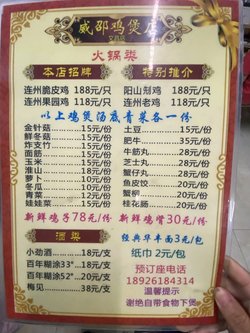 威邵鸡煲店
火锅类
本店招牌 特别推介
连州脆皮鸡 188元/只 阳山剔鸡 188元/只
连州果园鸡 118元/只 连州老鸡 118元/只
以上鸡煲汤底青菜各一份
金针菇 15元/份 土豆 15元/份
鲜冬菇 15元/份 肥牛 35元/份
炸支竹 15元/份 牛筋丸 25元/份
面筋 15元/份 芝士丸 25元/份
玉米 15元/份 蟹仔丸 25元/份
淮山 15元/份 蟹籽包 25元/份
萝卜 15元/份 鱼皮饺 20元/份
冬瓜 15元/份 蟹柳 20元/份
青菜 15元/份 桂花肠 20元/份
娃娃菜 15元/份
新鲜鸡子78元/份 新鲜鸡肾30元/份
酒类 经典华丰面3元/包
小劲酒 18元/支 纸巾 2元/包
百年糊涂33° 18元/支 预订座电话
百年糊涂52° 20元/支 18926184314
梅见 38元/支 温馨提示
谢绝自带食物下煲